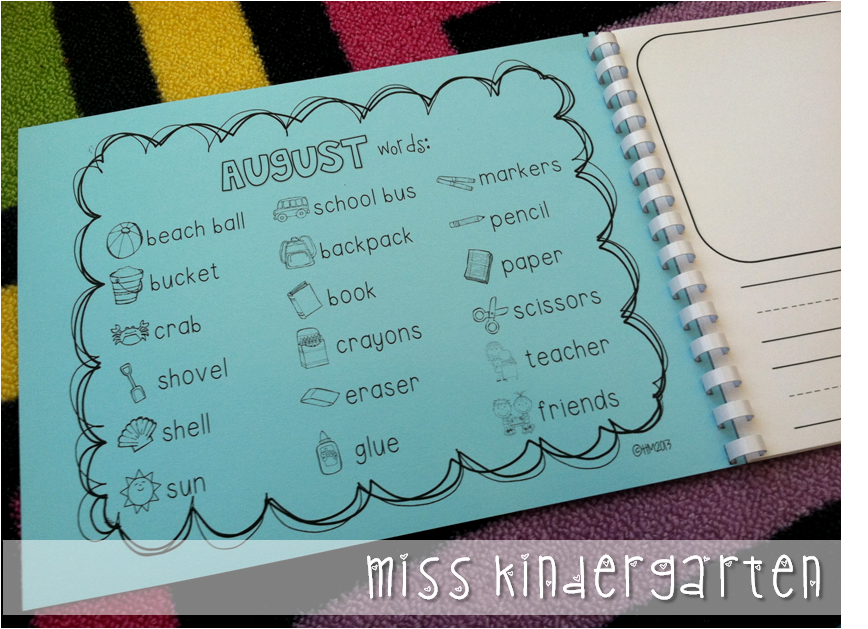 AUGUST words:
beach ball
bucket
crab
shovel
shell
sun
school bus
backpack
book
crayons
eraser
glue
markers
pencil
paper
scissors
teacher
friends
©HM2013
miss kindergarten